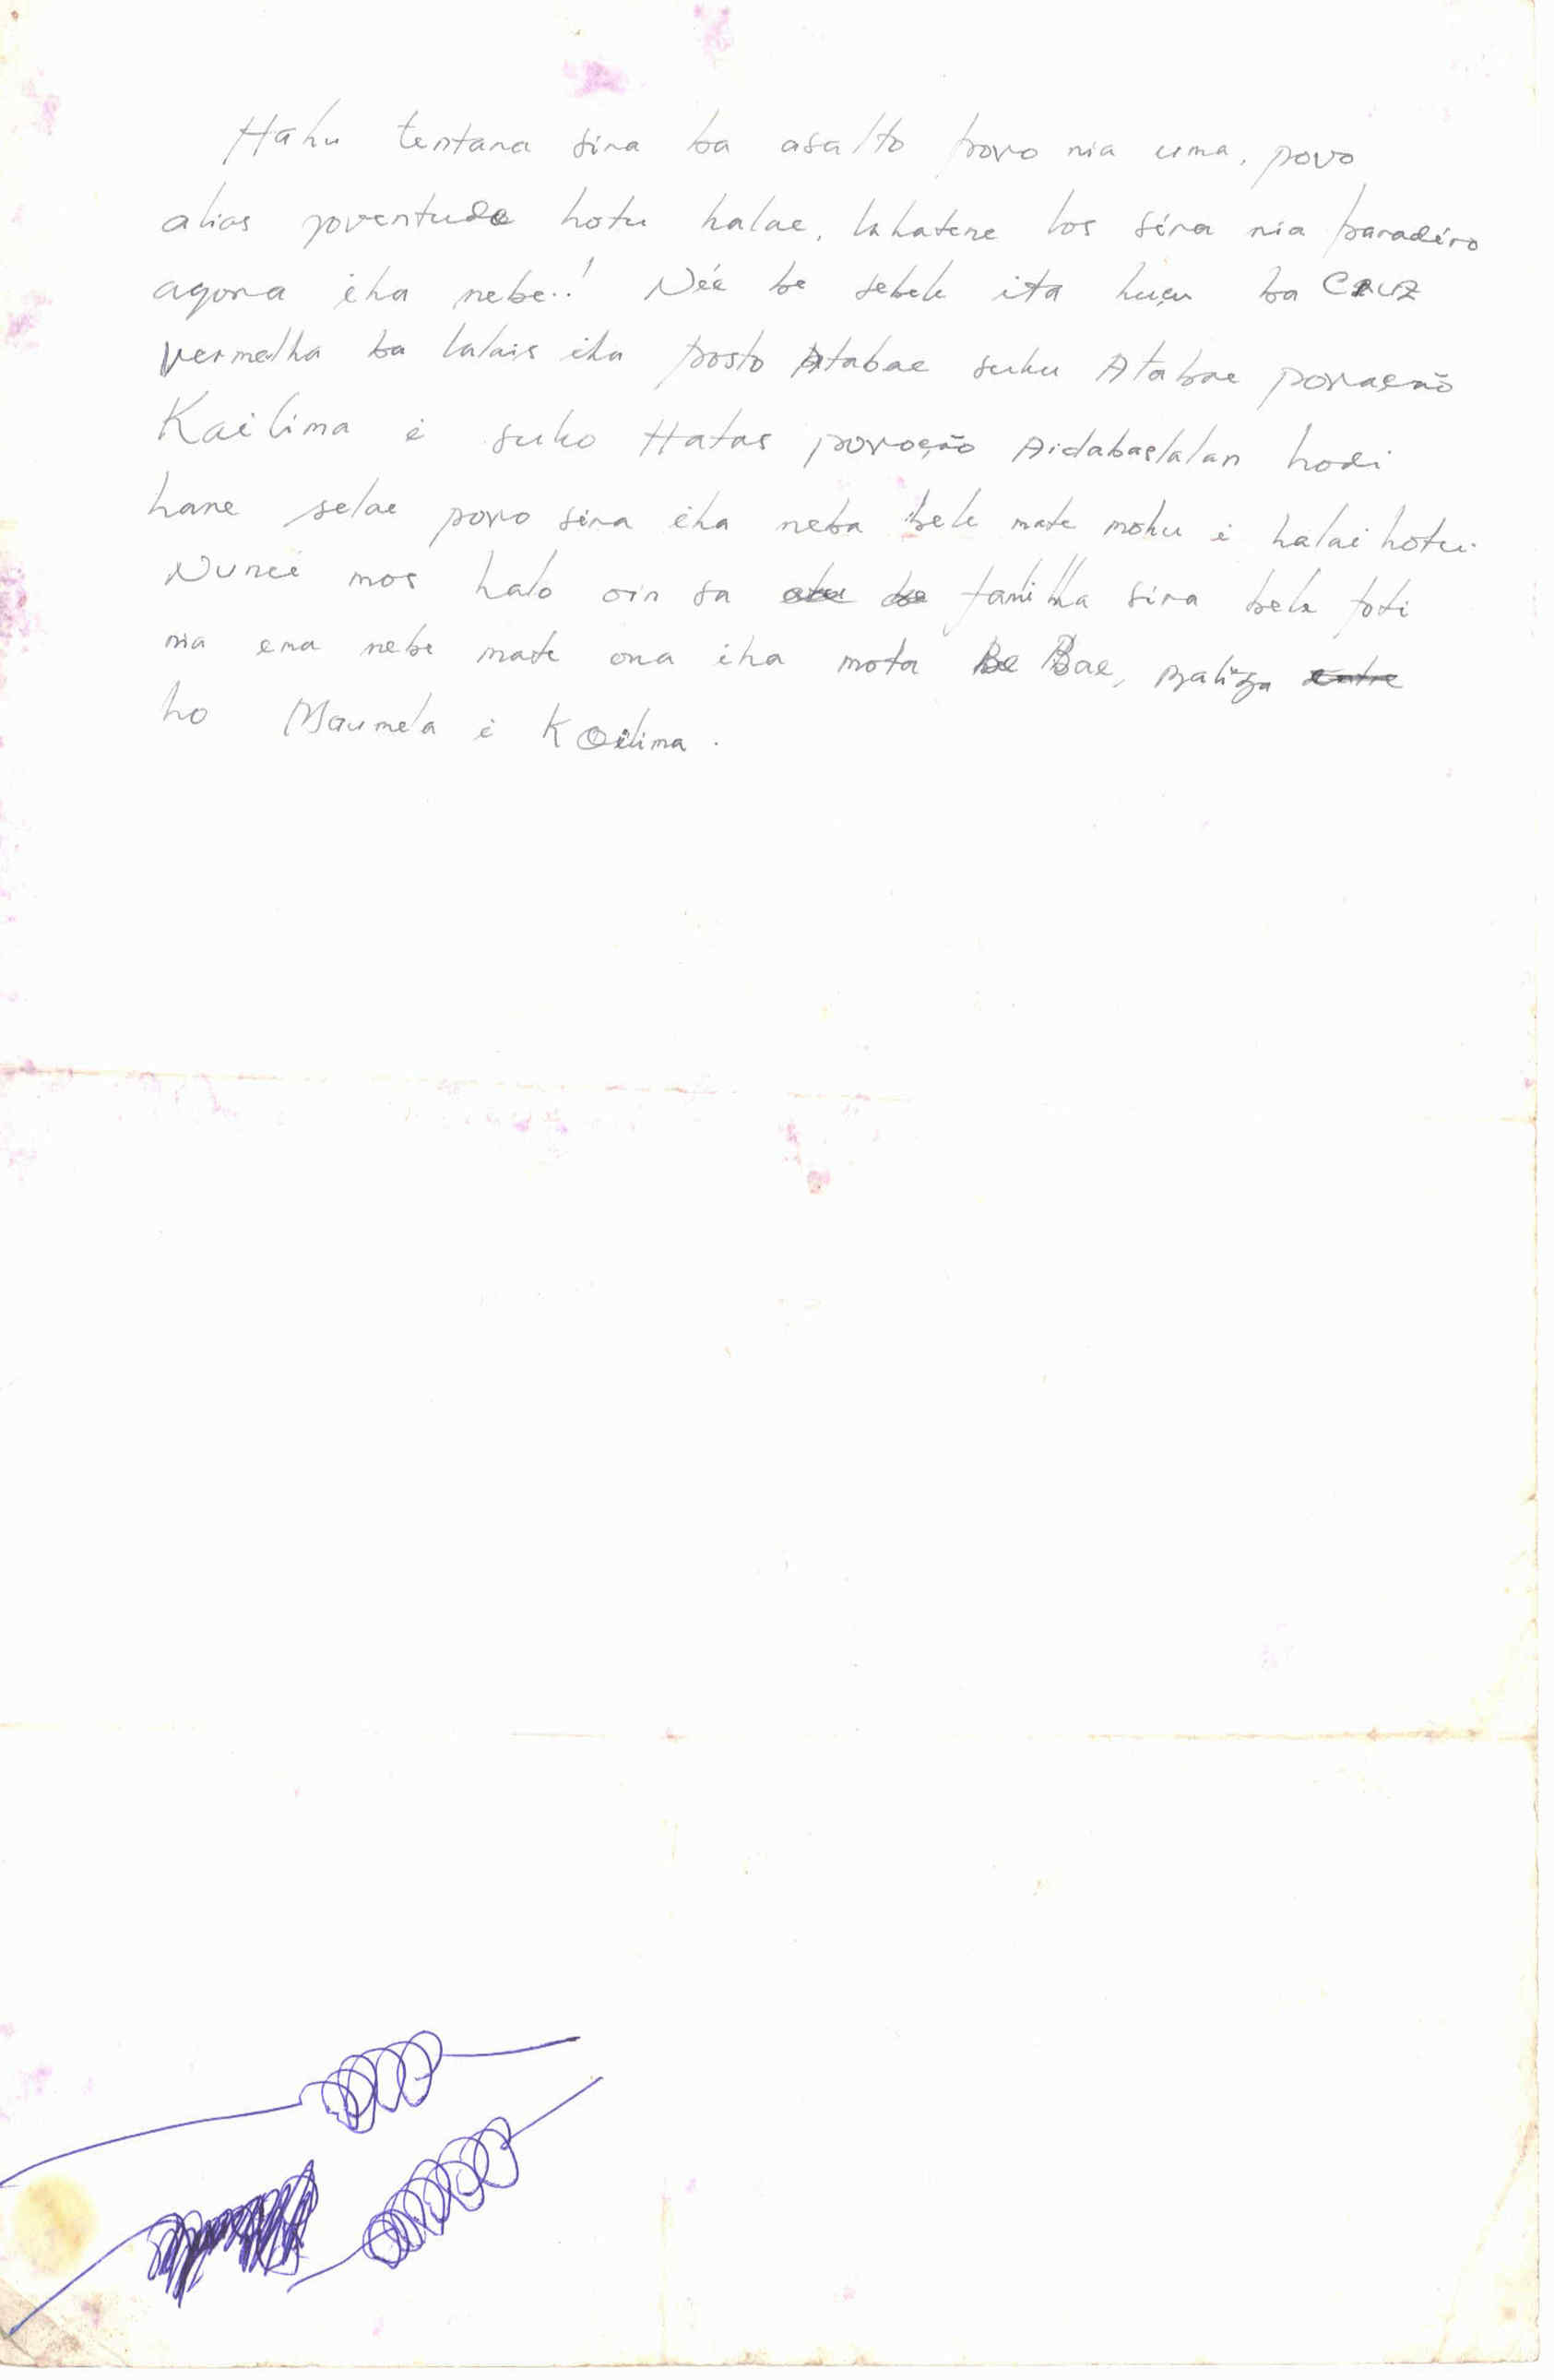 Hahu tentara sira ba asalto povo nia uma, povo
alias joventude hotu halae, lahatene los sira nia paradéro
agora iha nebe..! Néé be sebele ita huçu ba Cruz
vermelha ba lalais iha posto Atabae suku Atabae povoação
Kailima i suko Hatas povoação Aidabaslalan hodi
hare selae povo sira iha neba bele mate mohu i halai hotu.
Nuneé mos halo oin sa familha sira bele foti
nia ema nebe mate ona iha mota Be Bae, baliza
ho Maumela i Koilima.